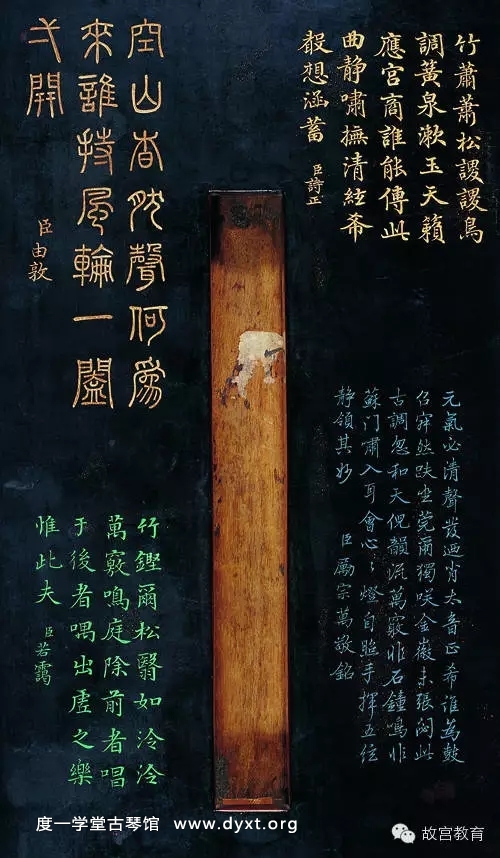 竹蕭蕭松謖謖鳥
調簧泉漱玉天籟
應宮商誰能傳此
曲静嘯撫清絃希
殸想涵蓄 臣詩正
空山杳然聲何為
來誰持風輪一闔
弌開
臣由敦
元氣必清聲發迺肖太音正希誰為鼓
召窅然趺坐莞爾獨咲金徽未張閟此
古調忽和天倪韻流萬竅非石鐘鳴非
蘇门嘯入耳會心〻燈自照手揮五弦
静領其妙 臣厲宗萬敬銘
竹鏗爾松翳如泠泠
萬竅鳴庭除前者唱
于後者喁出虛之樂
惟此夫 臣若靄
度一学堂古琴馆 www.dyxt.org
故宫教育